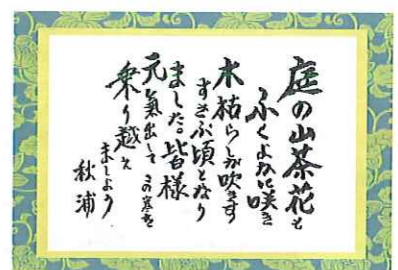 庭の山茶花も
ふくよかに咲き
木枯らしが吹きす
すさぶ頃となり
ました。皆様
元氣出して この寒を
乗り越え
ましょう
秋浦